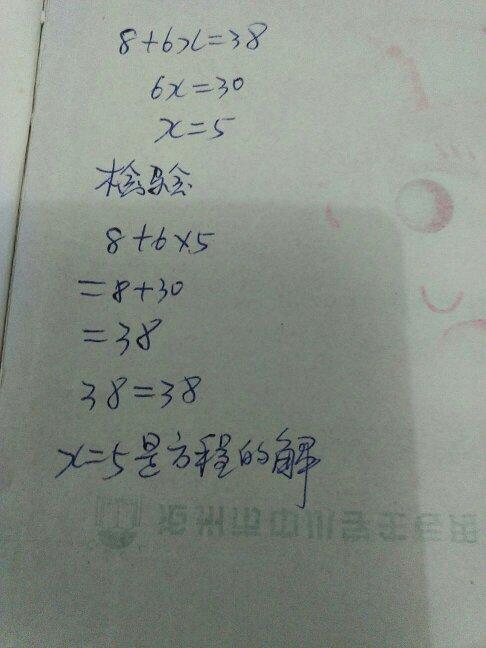 8+6x=38
6x=30
x=5
检验
8+6×5
=8+30
=38
38=38
x=5是方程的解